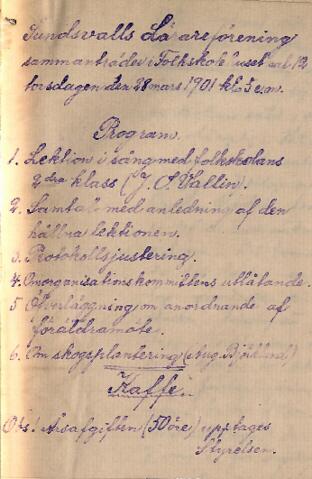 Sundsvalls Lärareförening
sammanträder i Folkskolehuset sal 12
torsdagen den 28 mars 1901 kl. 5 e.m.
Program.
1. Lektion i sång med folkskolans
2dra klass (J. S. Vallin).
2. Samtal med anledning af den
hållna lektionen.
3. Protokollsjustering.
4. Omorganisationskommitténs utlåtande.
5 Överläggning om anordnande af
föräldramöte.
6. Om skogsplantering (Aug. Björklund)
Kaffe.
Obs! Årsafgiften (50 öre) upptages
Styrelsen.